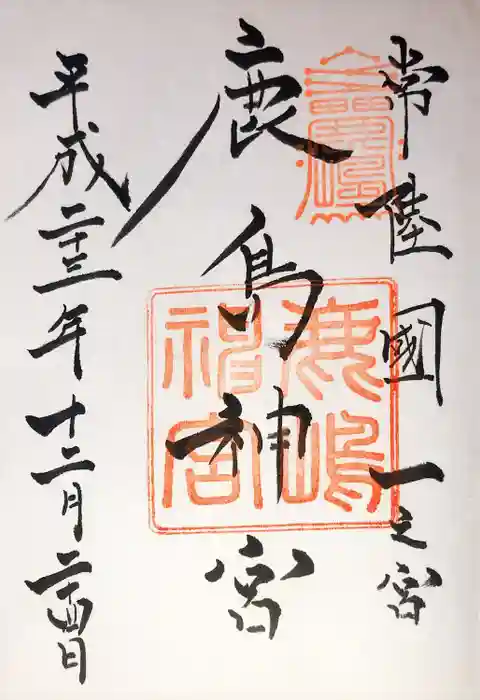 常陸國一之宮
鹿島神宮
平成二十三年十二月二十四日
鹿嶋神宮